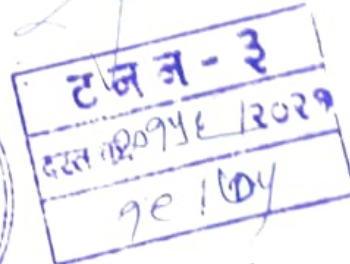 ट न न - ३
दस्त क्र. २०१५६ / २०२१
१८ / ७५